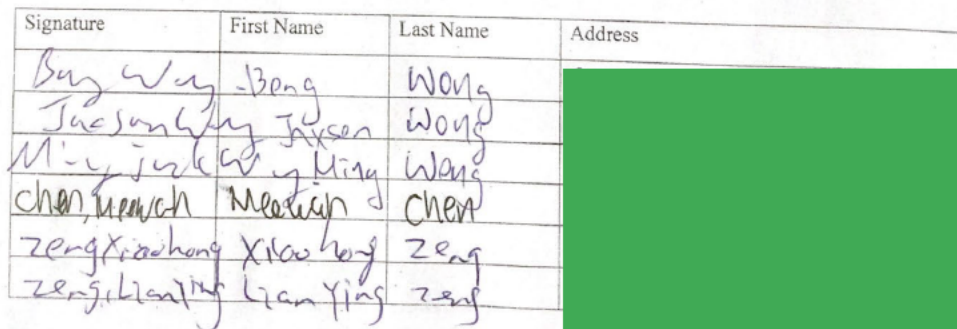 Signature First Name Last Name Address
Bong Wong Wong
Jaxson Wong
Ming Wong
chen, meewah Meewah Chen
zeng Xiaohong Xiaohong zeng
zeng, LianYing Lian Ying zeng